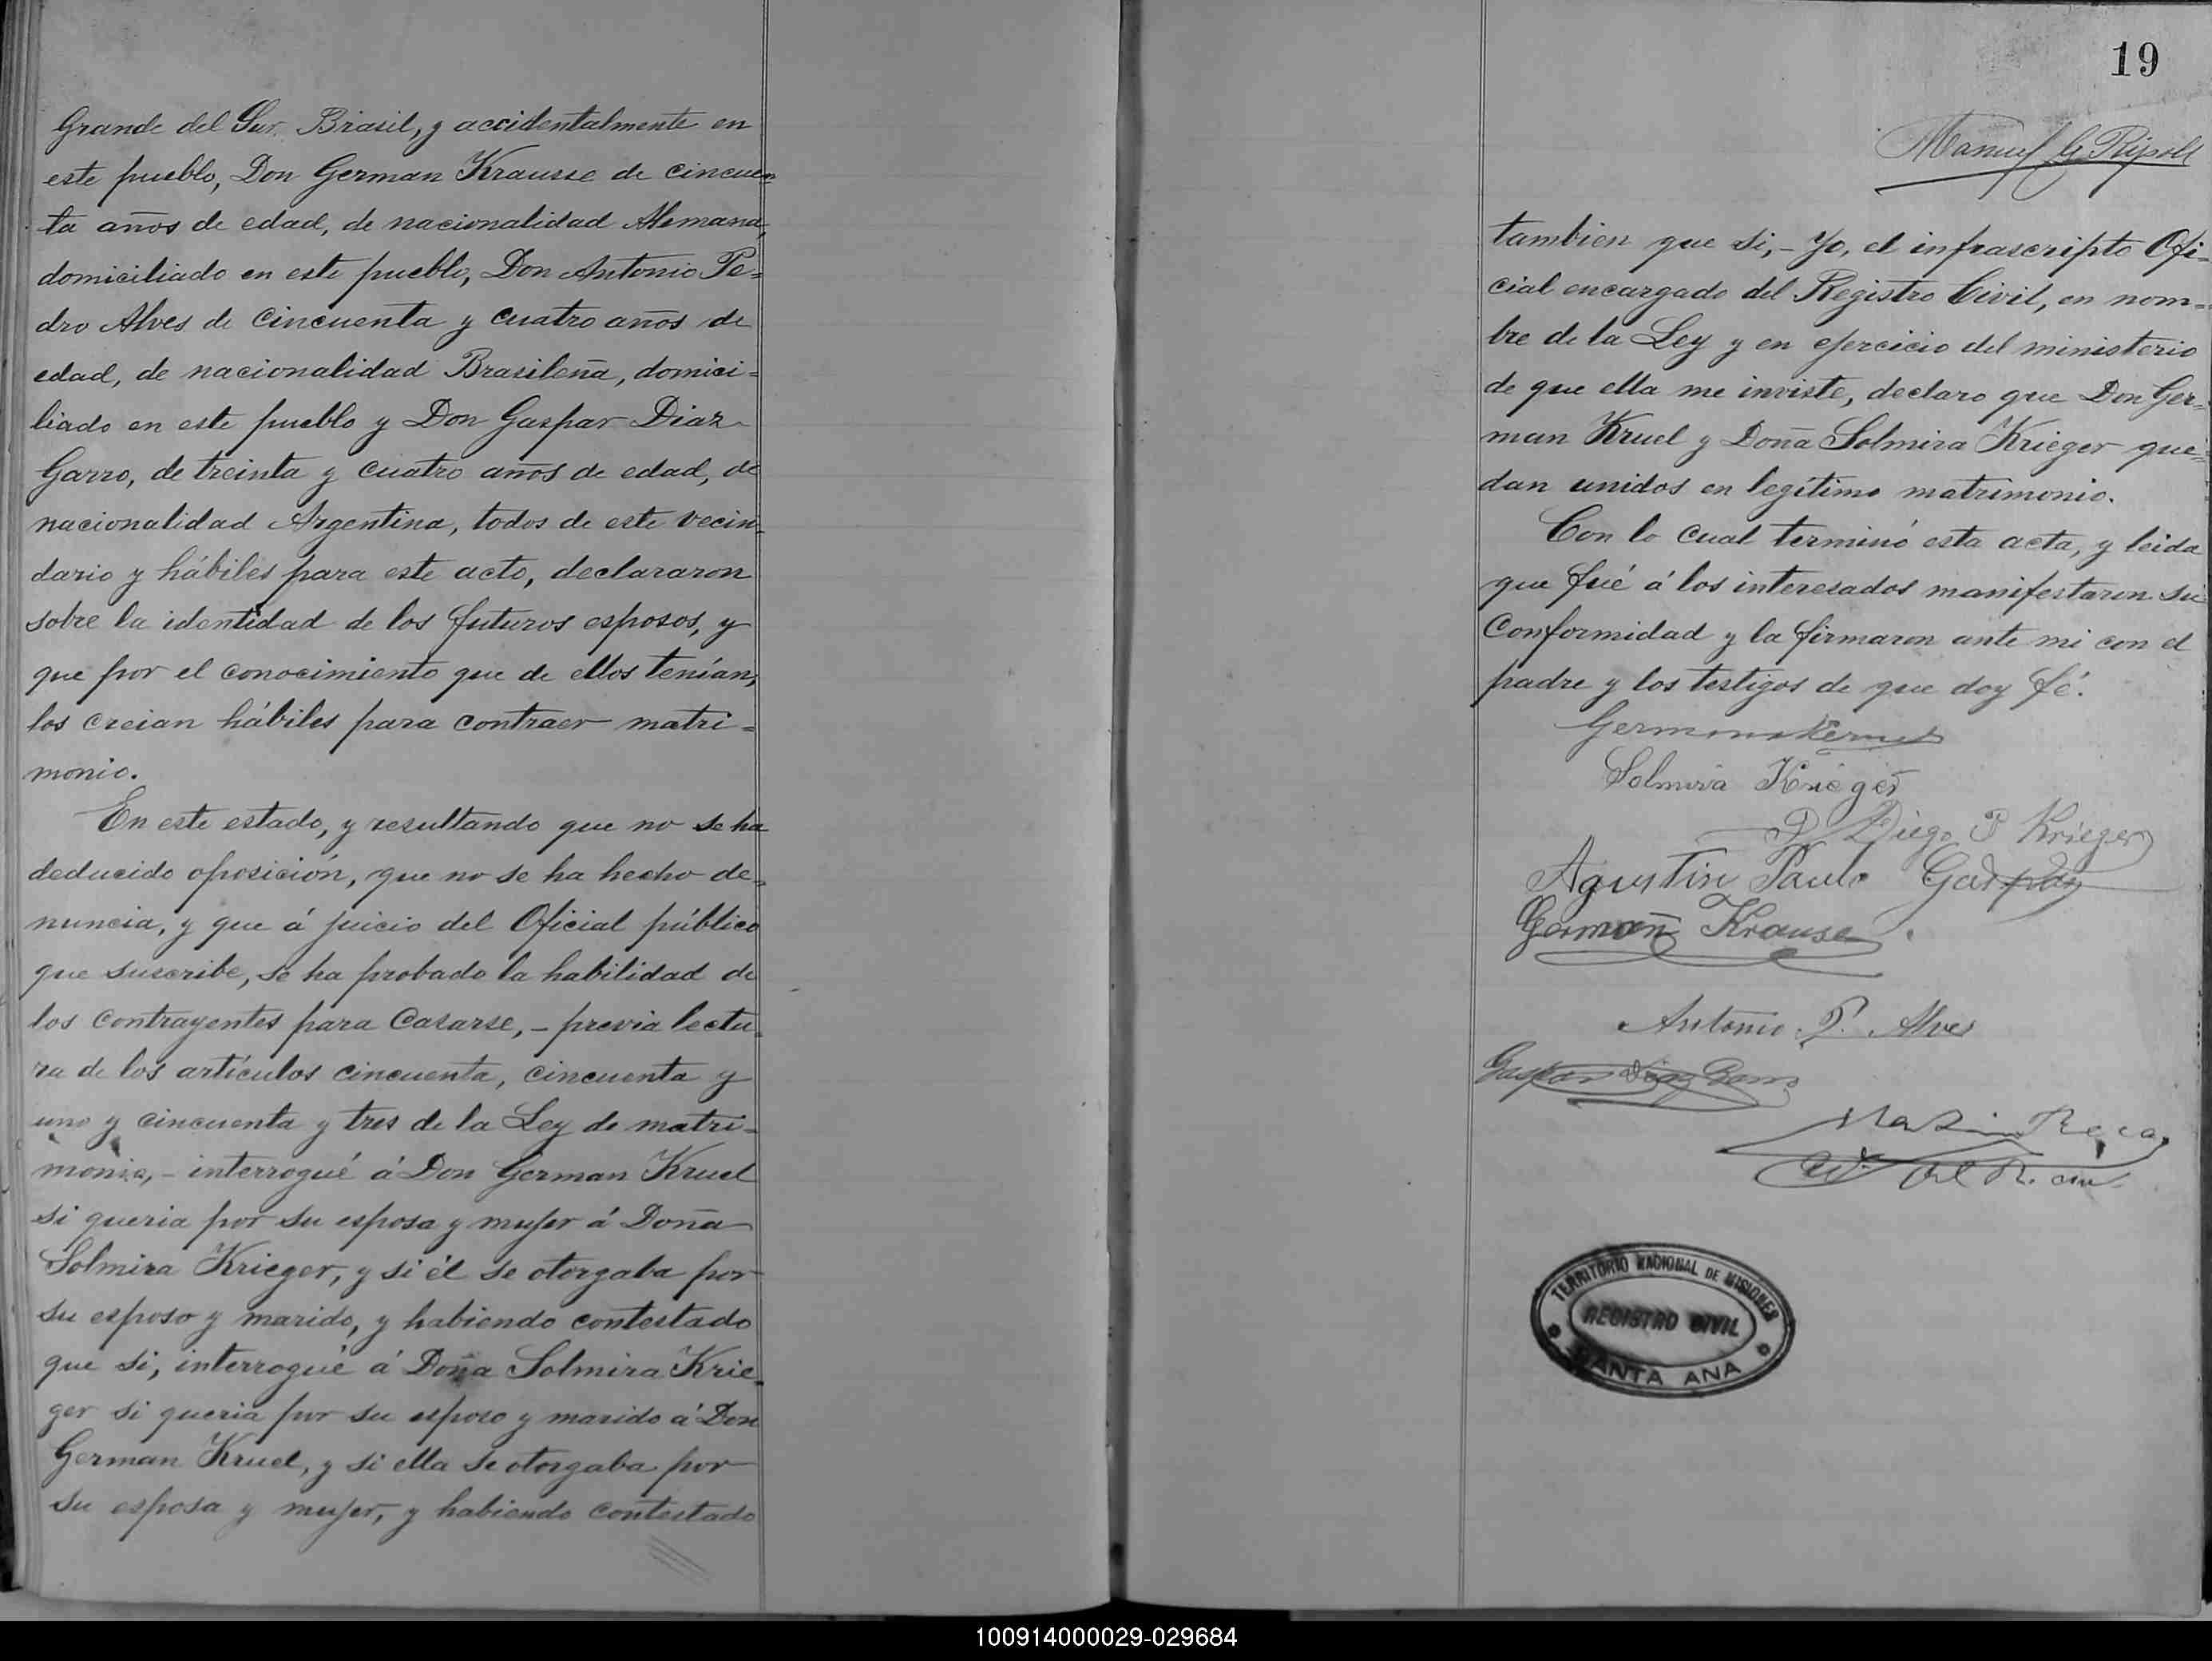 Grande del Sur, Brasil, y accidentalmente en
este pueblo, Don German Krausse de cincuen-
ta años de edad, de nacionalidad Alemana,
domiciliado en este pueblo, Don Antonio Pe=
dro Alves de cincuenta y cuatro años de
edad, de nacionalidad Brasileña, domici=
liado en este pueblo y Don Gaspar Diaz
Garro, de treinta y cuatro años de edad, de
nacionalidad Argentina, todos de este vecin-
dario y hábiles para este acto, declararon
sobre la identidad de los futuros esposos, y
que por el conocimiento que de ellos tenían,
los creian hábiles para contraer matri=
monio.
En este estado, y resultando que no se ha
deducido oposición, que no se ha hecho de=
nuncia, y que á juicio del Oficial público
que suscribe, se ha probado la habilidad de
los contrayentes para Casarse, - previa lectu-
ra de los artículos cincuenta, cincuenta y
uno y cincuenta y tres de la Ley de matri=
monio, - interrogué á Don German Kruel
si queria por su esposa y mujer á Doña
Solmira Krieger, y si él se otorgaba por
su esposo y marido, y habiendo contestado
que si, interrogué á Doña Solmira Krie-
ger si queria por su esposo y marido á Don
German Kruel, y si ella se otorgaba por
su esposa y mujer, y habiendo contestado
19
Manuel G. Ripoll
tambien que si, - Yo, el infrascripto Ofi-
cial encargado del Registro Civil, en nom=
bre de la Ley y en ejercicio del ministerio
de que ella me inviste, declaro que Don Ger=
man Kruel y Doña Solmira Krieger que=
dan unidos en legítimo matrimonio.
Con lo cual terminó esta acta, y leida
que fué á los interesados manifestaron su
Conformidad y la firmaron ante mi con el
padre y los testigos de que doy fé.
German
Solmira Krieger
Diego P Krieger
Agustin Paulo Gaspary
German Krause
Antonio P. Alves
Gaspar Diaz Garro
TERRITORIO NACIONAL DE MISIONES
REGISTRO CIVIL
SANTA ANA
100914000029-029684